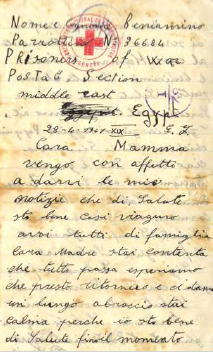 Nome e Beniamino
Parrot N° 36684
Prisoners of war
Postal Section
middle east
Egypt
22-4-1941-XIX
Cara Mamma
vengo con affetto
a darvi le mie
notizie che di salute
sto bene così viaguro
a voi tutti di famiglia
cara Madre stai contenta
che tutto passa speriamo
che presto ritornero e
un lungo abraccio stai
calma perche io sto bene
di salute fino al momento